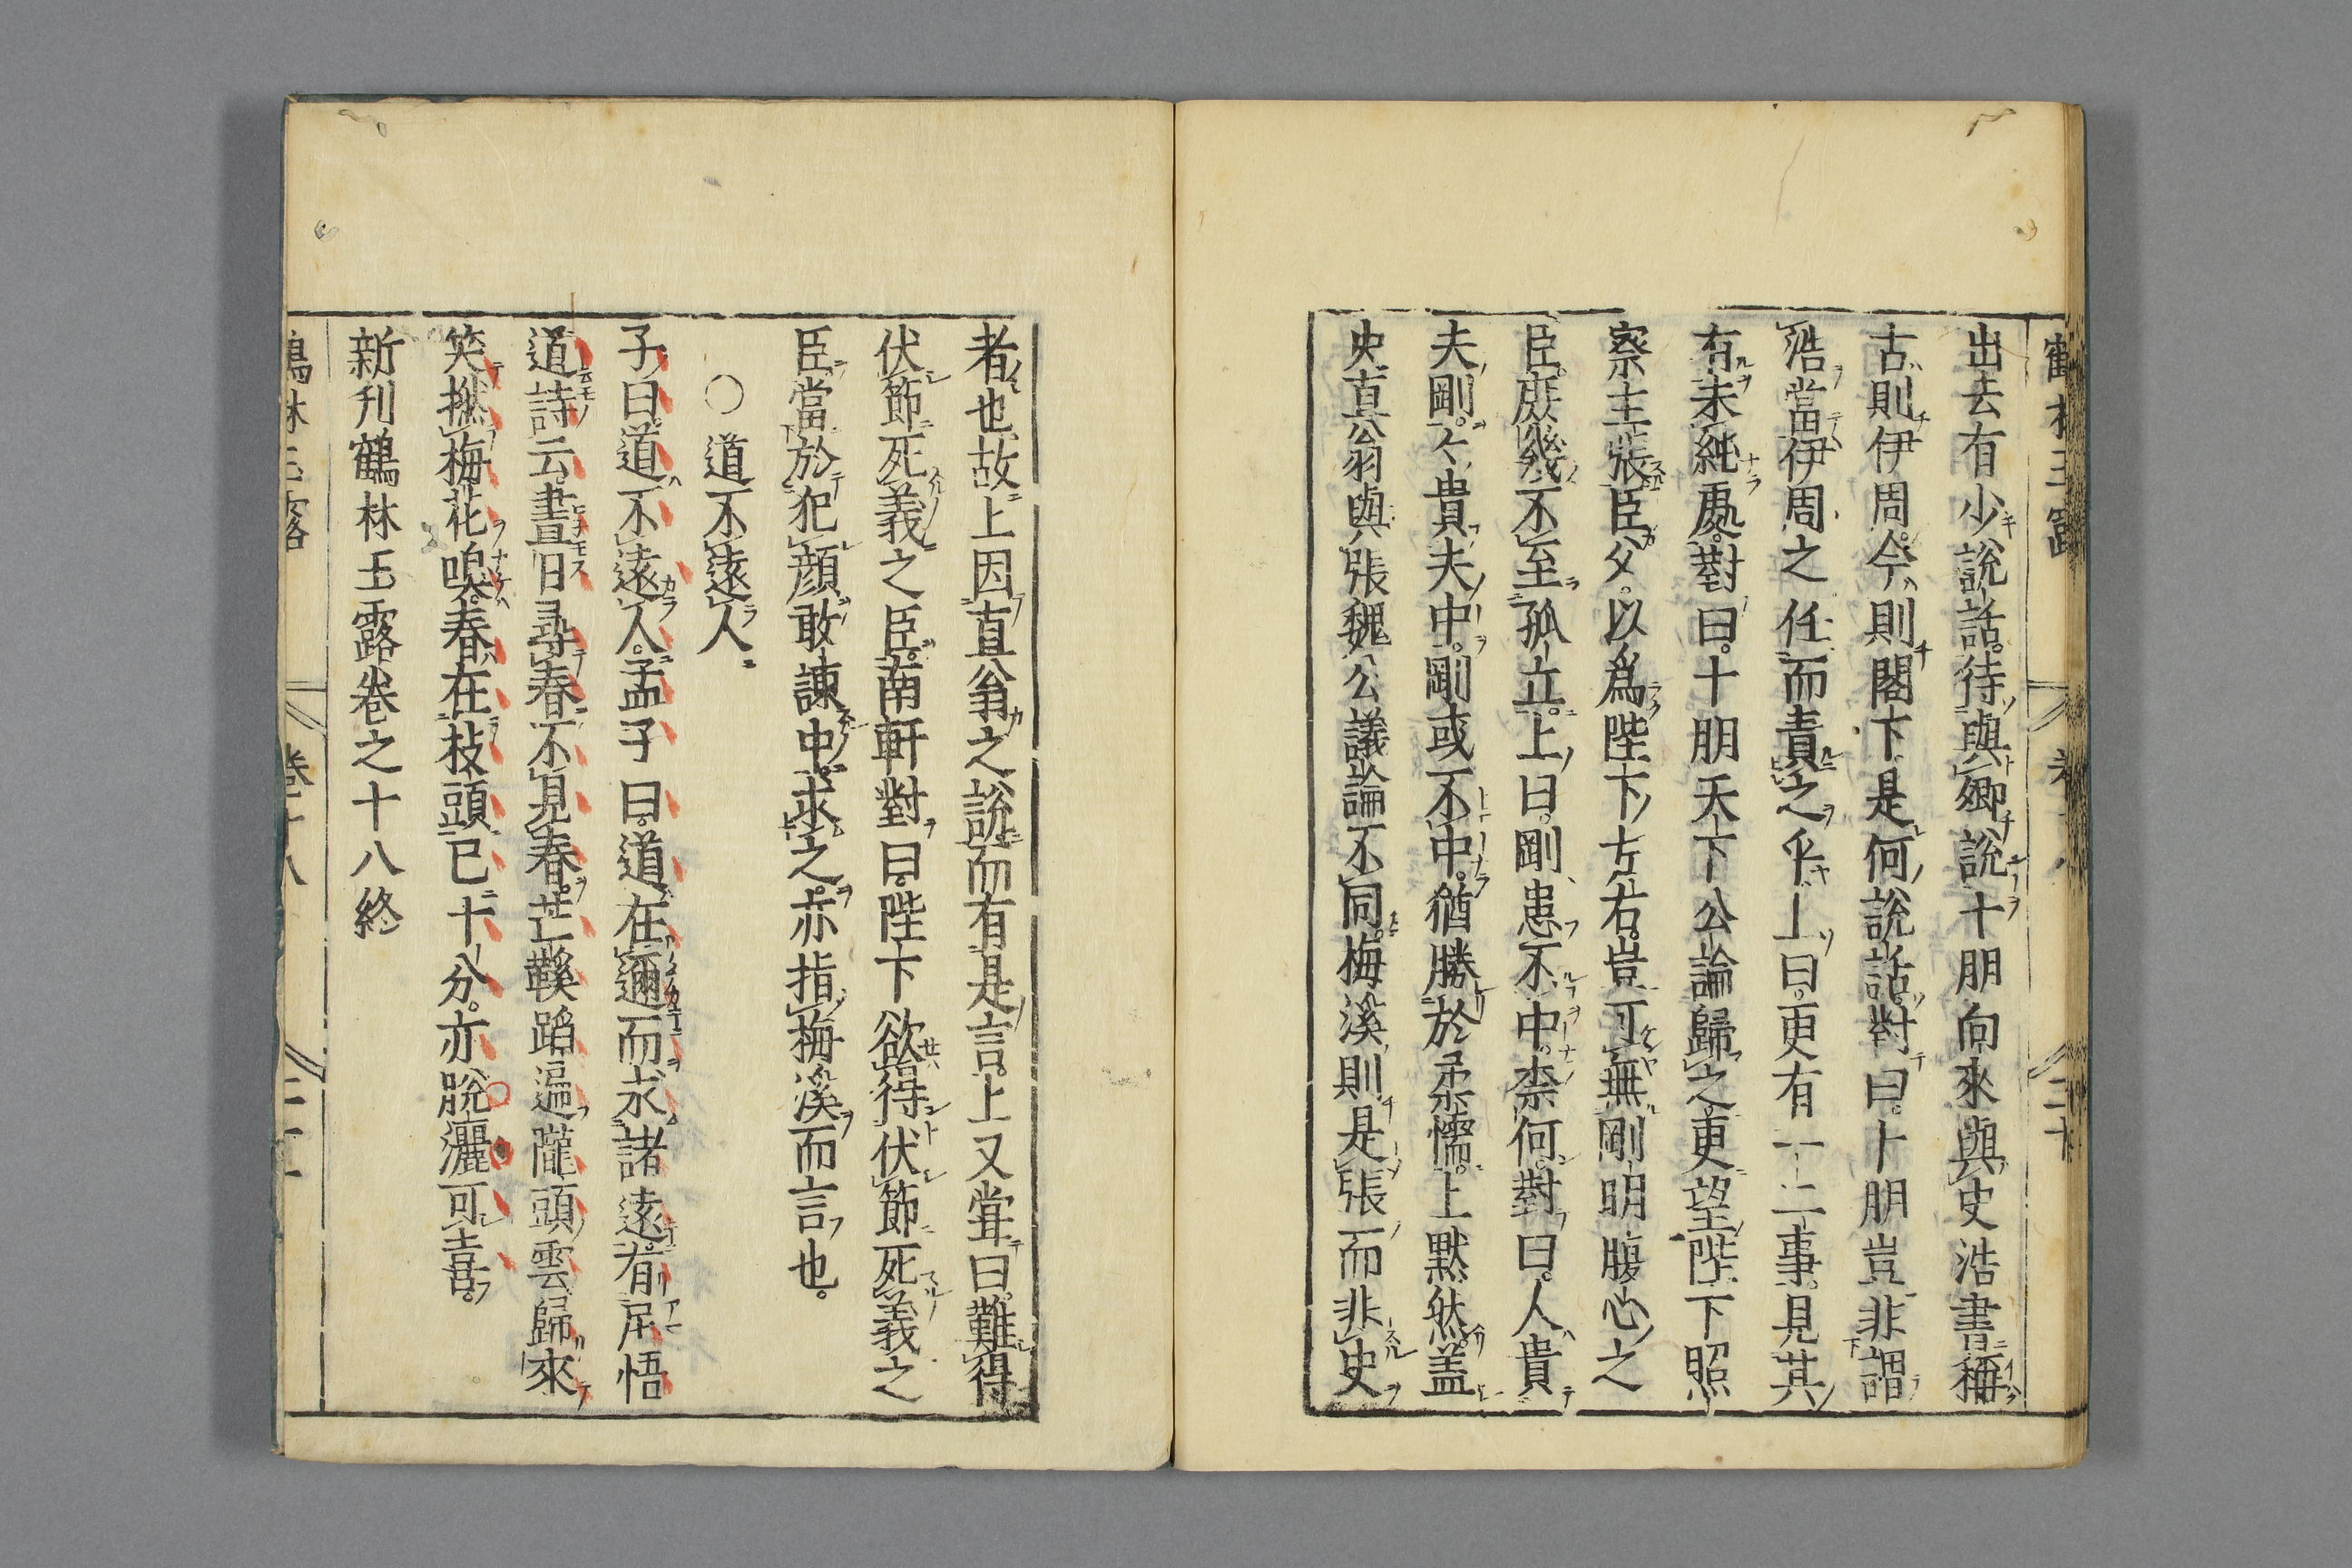 出去有少說話待與卿說十朋向來與史浩書稱
古則伊周今則閣下是何說話對曰十朋豈非謂
浩當伊周之任而責之乎上曰更有一二事見其
有未純處對曰十朋天下公論歸之更望陛下照
察主張臣父以爲陛下左右豈可無剛明腹心之
臣庶幾不至孤立上曰剛患不中柰何對曰人貴
夫剛々貴夫中剛或不中猶勝於柔懦上默然盖
史直翁與張魏公議論不同梅溪則是張而非史
者也故上因直翁之說而有是言上又嘗曰難得
伏節死義之臣南軒對曰陛下欲得伏節死義之
臣當於犯顔敢諫中求之亦指梅溪而言也
○道不遠人
子曰道不遠人孟子曰道在邇而求諸遠有尼悟
道詩云晝日尋春不見春芒鞵踏遍隴頭雲歸來
笑撚梅花嗅春在枝頭已十分亦脫灑可喜
新刊鶴林玉露卷之十八終